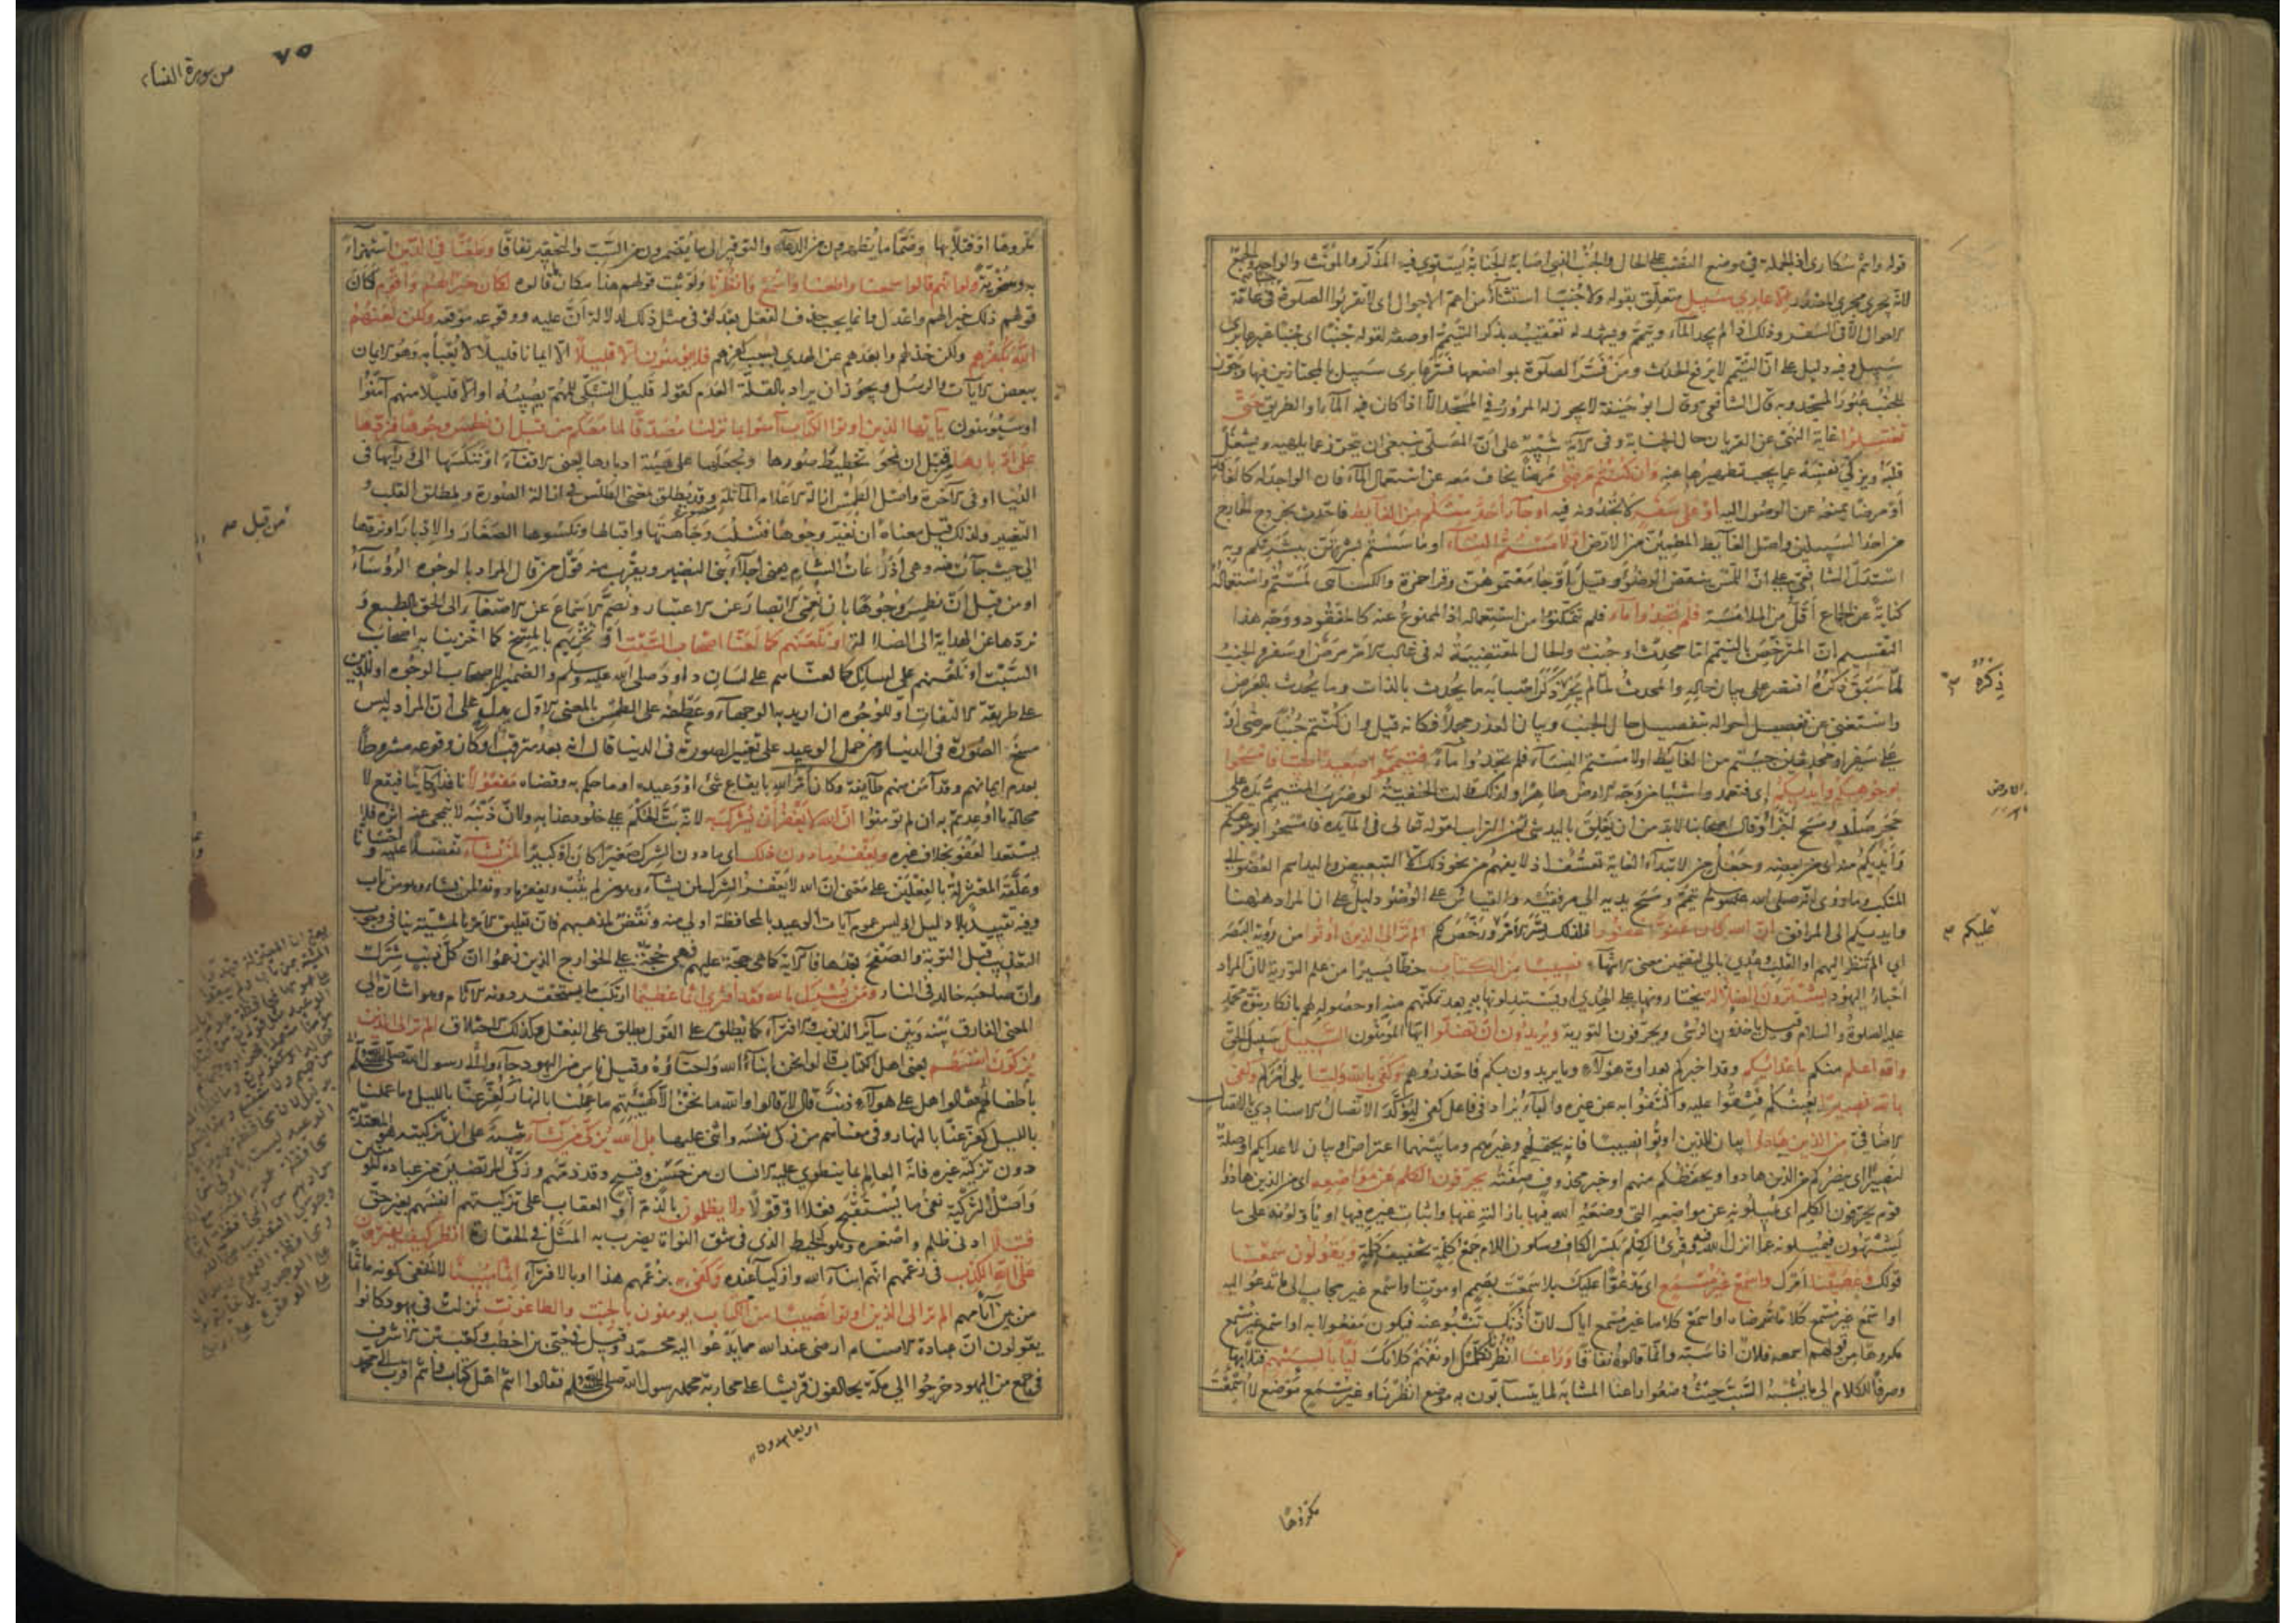 قوله وانتم سكارى اذ الجملة في موضع النصب على الحال والجنب الذي اصابه الجنابة يستوي فيه المذكر والمؤنث والواحد والجمع
لانه يجري مجرى المصدر الا عابري سبيل متعلق بقوله ولا جنبا استثناء من اعم الاحوال اي لا تقربوا الصلوة جنبا في عامة
الاحوال الا في السفر وذلك اذا لم يجد الماء وتيمم ويشهد له تعقيبه بذكر التيمم او صفة لقوله جنبا اي جنبا غير عابري
سبيل وفيه دليل على ان التيمم لا يرفع الحدث ومن فسر الصلوة بمواضعها فسر عابري سبيل بالمجتازين فيها وجوز
للجنب عبور المسجد وبه قال الشافعي وقال ابو حنيفة لا يجوز له المرور في المسجد الا اذا كان فيه الماء او الطريق حتى
تغتسلوا غاية النهي عن القربان حال الجنابة وفي الآية تنبيه على ان المصلي ينبغي ان يتحرز عما يلهيه ويشغل
قلبه ويزكي نفسه عما يجب تطهيرها عنه وان كنتم مرضى مرضا يخاف معه عن استعمال الماء فان الواجد له كالفاقد
او مرضا يمنعه عن الوصول اليه او على سفر لا تجدونه فيه او جاء احد منكم من الغائط فاحدث بخروج الخارج
من احد السبيلين واصل الغائط المطمئن من الارض او لامستم النساء او ماسستم بشرتهن ببشرتكم وبه
استدل الشافعي على ان اللمس ينقض الوضوء وقيل او جامعتموهن وقرا حمزة والكسائي لمستم واستعماله
كناية عن الجماع اقل من الملامسة فلم تجدوا ماء فلم تتمكنوا من استعماله اذ الممنوع عنه كالمفقود ووجه هذا
التقسيم ان المترخص بالتيمم اما محدث او جنب والحال المقتضية له في غالب الامر مرض او سفر والجنب
لما سبق ذكره اقتصر على بيان حاله والمحدث لما لم يجر ذكره ذكر اسبابه ما يحدث بالذات وما يحدث بالعرض
واستغنى عن تفصيل احواله بتفصيل حال الجنب وبيان العذر مجملا فكانه قيل وان كنتم جنبا مرضى او
على سفر او محدثين جئتم من الغائط او لامستم النساء فلم تجدوا ماء فتيمموا صعيدا طيبا فامسحوا
بوجوهكم وايديكم اي فتعمدوا شيئا من وجه الارض طاهرا ولذلك قالت الحنفية لو ضرب المتيمم يده على
حجر صلد ومسح اجزأه وقال اصحابنا لا بد من ان يعلق باليد شيء من التراب لقوله تعالى في المائدة فامسحوا بوجوهكم
وايديكم منه اي من بعضه وجعل من لابتداء الغاية تعسف اذ لا يفهم من نحو ذلك الا التبعيض واليد اسم العضو الى
المنكب وما روي انه صلى الله عليه وسلم تيمم ومسح يديه الى مرفقيه والقياس على الوضوء دليل على ان المراد ههنا
وايديكم الى المرافق ان الله كان عفوا غفورا فلذلك يسر الامر ورخص لكم الم تر الى الذين اوتوا من رؤية البصر
اي الم تنظر اليهم او القلب وعدي بالى لتضمن معنى الانتهاء نصيبا من الكتاب حظا يسيرا من علم التورية لان المراد
احبار اليهود يشترون الضلالة يختارونها على الهدى او يستبدلونها به بعد تمكنهم منه او حصوله لهم بانكار نبوة محمد
عليه الصلوة والسلام وقيل ياخذون الرشى ويحرفون التورية ويريدون ان تضلوا ايها المؤمنون السبيل سبيل الحق
والله اعلم منكم باعدائكم وقد اخبركم بعداوة هؤلاء وما يريدون بكم فاحذروهم وكفى بالله وليا يلي امركم وكفى
بالله نصيرا يعينكم فثقوا عليه واكتفوا به عن غيره والباء تزاد في فاعل كفى ليؤكد الاتصال الاسنادي بالاتصال
الاضافي من الذين هادوا بيان للذين اوتوا نصيبا فانه يحتملهم وغيرهم وما بينهما اعتراض او بيان لاعدائكم او صلة
لنصيرا اي ينصركم من الذين هادوا ويحفظكم منهم او خبر محذوف صفته يحرفون الكلم عن مواضعه اي من الذين هادوا
قوم يحرفون الكلم اي يميلونه عن مواضعه التي وضعه الله فيها بازالته عنها واثبات غيره فيها او يأولونه على ما
يشتهون فيميلونه عما انزل الله فيه وقرئ الكلم بكسر الكاف وسكون اللام جمع كلمة تخفيف كلمة ويقولون سمعنا
قولك وعصينا امرك واسمع غير مسمع اي مدعوا عليك بلا سمعت بصمم او موت او اسمع غير مجاب الى ما تدعو اليه
او اسمع غير مسمع كلاما ترضاه او اسمع كلاما غير مسمع اياك لان اذنك تنبو عنه فيكون مفعولا به او اسمع غير مسمع
مكروها من قولهم اسمعه فلان اذا سبه وانما قالوه نفاقا وراعنا انظرنا نكلمك او نفهم كلامك ليا بالسنتهم فتلا بها
وصرفا للكلام الى ما يشبه السب حيث وضعوا راعنا المشابه لما يتسابون به موضع انظرنا وغير مسمع موضع لا اسمعت
ذكره
عليكم
مكروها
٧٥
من سورة النساء
مكروها او فتلا بها وضما ما يظهرون من الدعاء والتوقير الى ما يضمرون من السب والتحقير نفاقا وطعنا في الدين استهزاء
به وسخرية ولو انهم قالوا سمعنا واطعنا واسمع وانظرنا ولو ثبت قولهم هذا مكان ما قالوه لكان خيرا لهم واقوم لكان
قولهم ذلك خيرا لهم واعدل وانما يجب حذف الفعل بعد لو في مثل ذلك لدلالة ان عليه ووقوعه موقعه ولكن لعنهم
الله بكفرهم ولكن خذلهم وابعدهم عن الهدى بسبب كفرهم فلا يؤمنون الا قليلا الا ايمانا قليلا لا يعبأ به وهو الايمان
ببعض الآيات والرسل ويجوز ان يراد بالقلة العدم كقوله قليل التشكي للمهم يصيبه او الا قليلا منهم آمنوا
او سيؤمنون يا ايها الذين اوتوا الكتاب آمنوا بما نزلنا مصدقا لما معكم من قبل ان نطمس وجوها فنردها
على ادبارها من قبل ان نمحو تخطيط صورها ونجعلها على هيئة ادبارها يعني الاقفاء او ننكسها الى ورائها في
الدنيا او في الآخرة واصل الطمس ازالة الاعلام الماثلة وقد يطلق بمعنى الطلس في ازالة الصورة ولمطلق القلب و
التغيير ولذلك قيل معناه ان نغير وجوها فنسلب وجاهتها واقبالها ونكسوها الصغار والادبار او نردها
الى حيث جاءت منه وهي اذرعات الشام يعني اجلاء بني النضير ويقرب منه قول من قال المراد بالوجوه الرؤساء
او من قبل ان نطمس وجوها بان نعمي الابصار عن الاعتبار ونصم الاسماع عن الاصغاء الى الحق بالطبع و
نردها عن الهداية الى الضلالة او نلعنهم كما لعنا اصحاب السبت او نخزيهم بالمسخ كما اخزينا به اصحاب
السبت او نلعنهم على لسانك كما لعناهم على لسان داود صلى الله عليه وسلم والضمير لاصحاب الوجوه او للذين
على طريقة الالتفات او للوجوه ان اريد بها الوجهاء وعطفه على الطمس بالمعنى الاول يدل على ان المراد به ليس
مسخ الصورة في الدنيا ومن حمل الوعيد على تغيير الصورة في الدنيا قال انه بعد مترقب او كان وقوعه مشروطا
بعدم ايمانهم وقد آمن منهم طائفة وكان امر الله بايقاع شيء او وعيده او ما حكم به وقضاه مفعولا نافذا كائنا فيقع لا
محالة ما اوعدتم به ان لم تؤمنوا ان الله لا يغفر ان يشرك به لانه بت الحكم على خلود عذابه ولان ذنبه لا ينمحي عنه اثره فلا
يستعد للعفو بخلاف غيره ويغفر ما دون ذلك اي ما دون الشرك صغيرا كان او كبيرا لمن يشاء تفضلا عليه واحسانا
وعلقه المعتزلة بالفعلين على معنى ان الله لا يغفر الشرك لمن يشاء وهو من لم يتب ويغفر ما دونه لمن يشاء وهو من تاب
وفيه تقييد بلا دليل اذ ليس عموم آيات الوعيد بالمحافظة اولى منه ونقض لمذهبهم فان تعليق الامر بالمشيئة ينافي وجوب
التعذيب قبل التوبة والصفح بعدها فالآية كما هي حجة عليهم فهي حجة على الخوارج الذين زعموا ان كل ذنب شرك
وان صاحبه خالد في النار ومن يشرك بالله فقد افترى اثما عظيما ارتكب ما يستحقر دونه الآثام وهو اشارة الى
المعنى الفارق بينه وبين سائر الذنوب والافتراء كما يطلق على القول يطلق على الفعل وكذلك الاختلاق الم تر الى الذين
يزكون انفسهم يعني اهل الكتاب قالوا نحن ابناء الله واحباؤه وقيل ناس من اليهود جاءوا الى رسول الله صلى الله عليه وسلم
باطفالهم فقالوا هل على هؤلاء ذنب قال لا قالوا والله ما نحن الا كهيئتهم ما عملنا بالنهار كفر عنا بالليل وما عملنا
بالليل كفر عنا بالنهار وفي معناهم من زكى نفسه واثنى عليها بل الله يزكي من يشاء تنبيه على ان تزكيته هو المعتد به
دون تزكية غيره فانه العالم بما ينطوي عليه الانسان من حسن وقبيح وقد ذمهم وزكى المرتضين من عباده المؤمنين
واصل التزكية نفي ما يستقبح فعلا او قولا ولا يظلمون بالذم او العقاب على تزكيتهم انفسهم بغير حق
فتيلا ادنى ظلم واصغره وهو الخيط الذي في شق النواة يضرب به المثل في الحقارة انظر كيف يفترون
على الله الكذب في زعمهم انهم ابناء الله وازكياء عنده وكفى به بزعمهم هذا او بالافتراء اثما مبينا لا يخفى كونه ماثما
من بين آثامهم الم تر الى الذين اوتوا نصيبا من الكتاب يؤمنون بالجبت والطاغوت نزلت في يهود كانوا
يقولون ان عبادة الاصنام ارضى عند الله مما يدعو اليه محمد وقيل في حيي بن اخطب وكعب بن الاشرف
في جمع من اليهود خرجوا الى مكة يحالفون قريشا على محاربة محمد رسول الله صلى الله عليه وسلم فقالوا انتم اهل كتاب وانتم اقرب الى محمد
من قبل